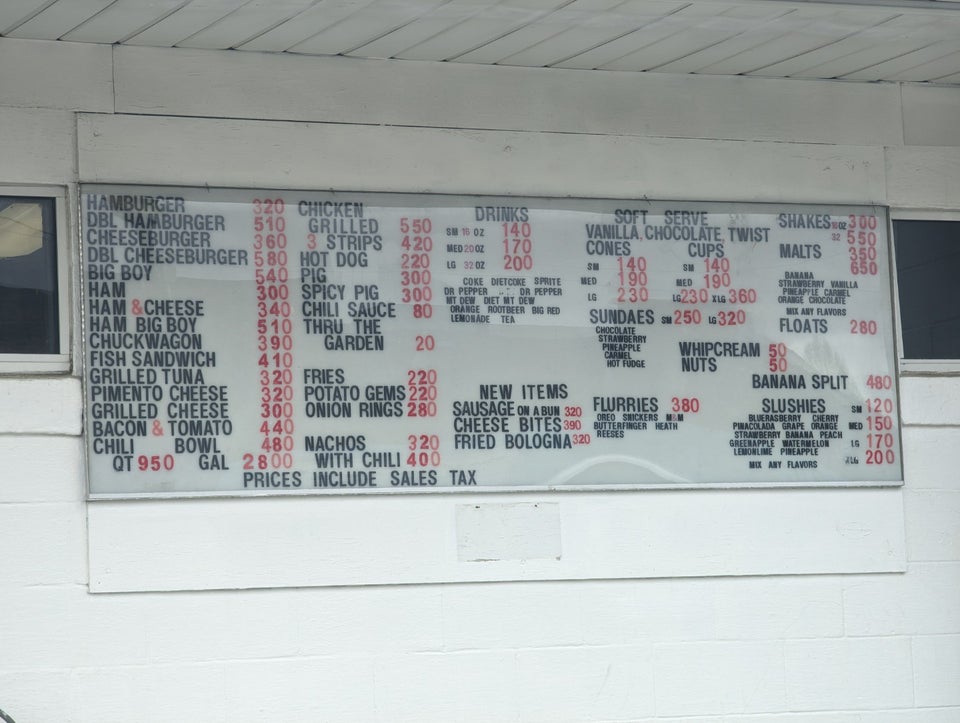 HAMBURGER 320
DBL HAMBURGER 510
CHEESEBURGER 360
DBL CHEESEBURGER 580
BIG BOY 540
HAM 300
HAM & CHEESE 340
HAM BIG BOY 510
CHUCKWAGON 390
FISH SANDWICH 410
GRILLED TUNA 320
PIMENTO CHEESE 320
GRILLED CHEESE 300
BACON & TOMATO 440
CHILI BOWL 480
QT 950 GAL 2800
CHICKEN
GRILLED 550
3 STRIPS 420
HOT DOG 220
PIG 300
SPICY PIG 300
CHILI SAUCE 80
THRU THE
GARDEN 20
FRIES 220
POTATO GEMS 220
ONION RINGS 280
NACHOS 320
WITH CHILI 400
DRINKS
SM 16 OZ 140
MED 20 OZ 170
LG 32 OZ 200
COKE DIETCOKE SPRITE
DR PEPPER DR PEPPER
MT DEW DIET MT DEW
ORANGE ROOTBEER BIG RED
LEMONADE TEA
NEW ITEMS
SAUSAGE ON A BUN 320
CHEESE BITES 390
FRIED BOLOGNA 320
SOFT SERVE
VANILLA, CHOCOLATE, TWIST
CONES CUPS
SM 140 SM 140
MED 190 MED 190
LG 230 LG 230 XLG 360
SUNDAES SM 250 LG 320
CHOCOLATE
STRAWBERRY
PINEAPPLE
CARMEL
HOT FUDGE
WHIPCREAM 50
NUTS 50
FLURRIES 380
OREO SNICKERS M&M
BUTTERFINGER HEATH
REESES
SHAKES 16 OZ 300
32 550
MALTS 350
650
BANANA
STRAWBERRY VANILLA
PINEAPPLE CARMEL
ORANGE CHOCOLATE
MIX ANY FLAVORS
FLOATS 280
BANANA SPLIT 480
SLUSHIES SM 120
BLUERASBERRY CHERRY
PINACOLADA GRAPE ORANGE MED 150
STRAWBERRY BANANA PEACH
GREENAPPLE WATERMELON LG 170
LEMONLIME PINEAPPLE
MIX ANY FLAVORS XLG 200
PRICES INCLUDE SALES TAX